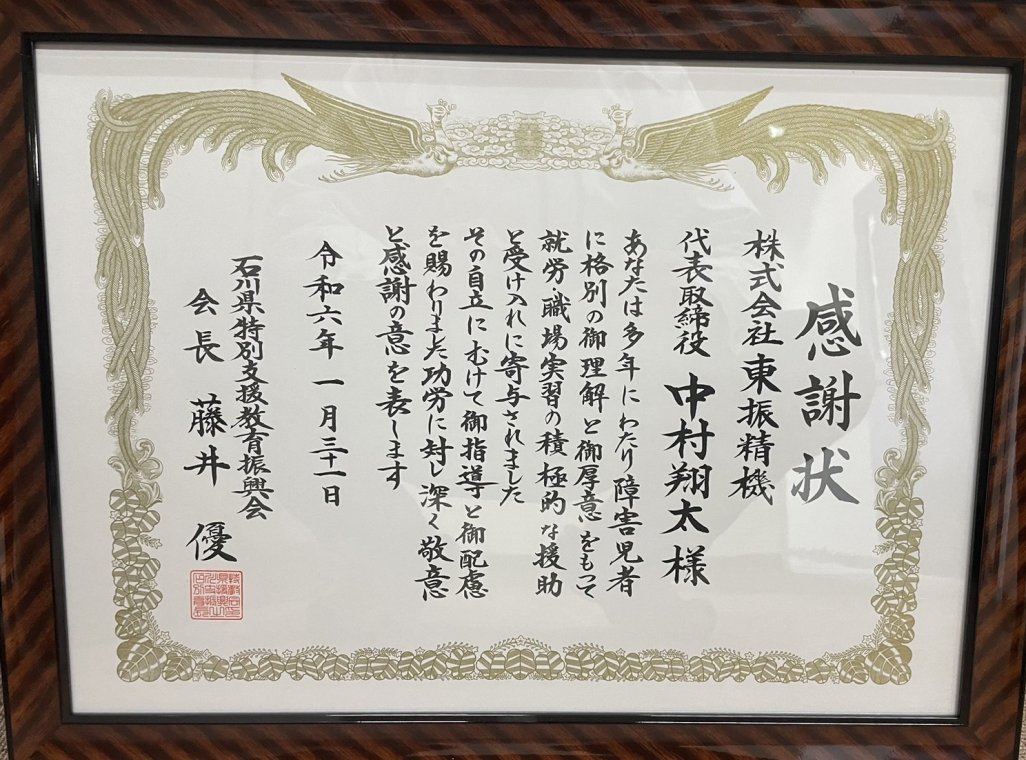 感謝状
株式会社 東振精機
代表取締役 中村翔太様
あなたは多年にわたり障害児者
に格別の御理解と御厚意をもって
就労・職場実習の積極的な援助
と受け入れに寄与されました
その自立にむけて御指導と御配慮
を賜わりました功労に対し深く敬意
と感謝の意を表します
令和六年一月三十一日
石川県特別支援教育振興会
会長 藤井 優